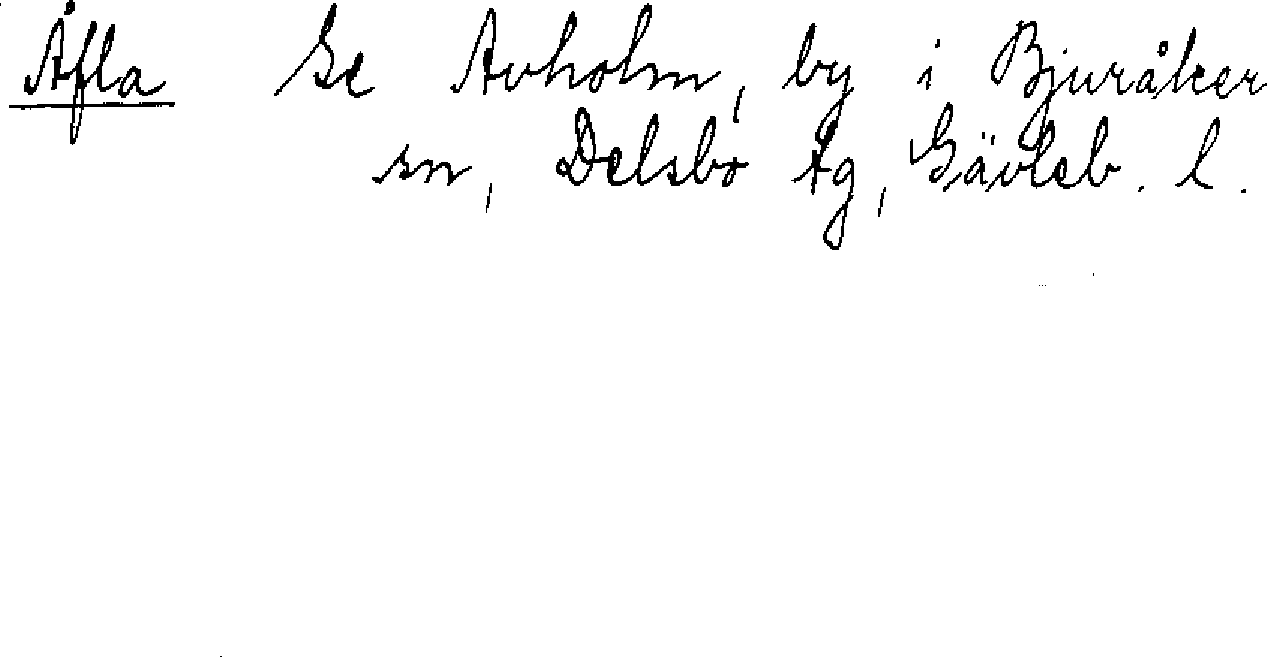 Åfla Se Avholm, by i Bjuråker
sn, Delsbo tg, Gävleb. l.